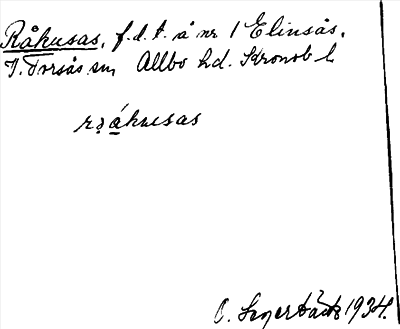 Råhusas, f.d.t. å nr 1 Elinsås,
T. Torsås sn, Allbo hd. Kronob l
rəåhusas
O. 1934.